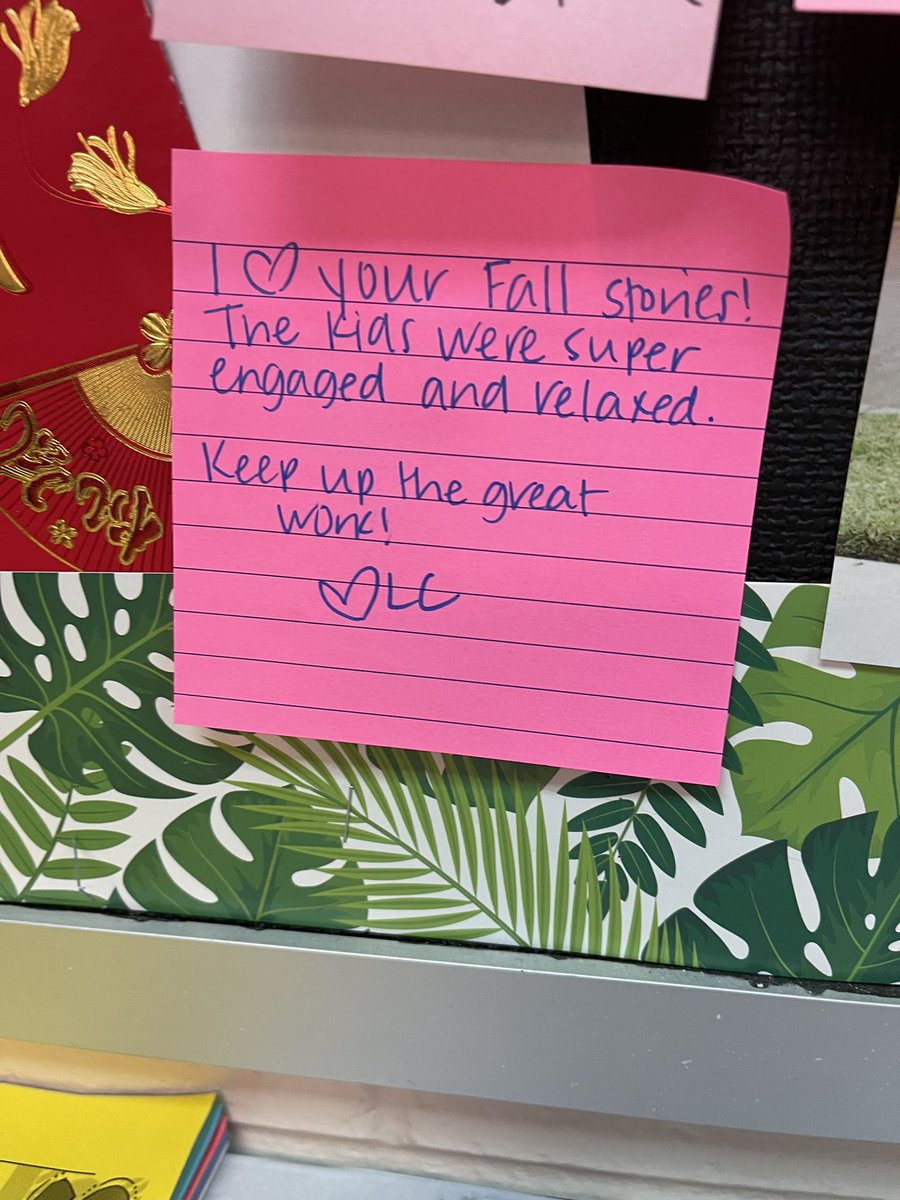 I ♡ your Fall stories!
The kids were super
engaged and relaxed.
Keep up the great
work!
♡LC